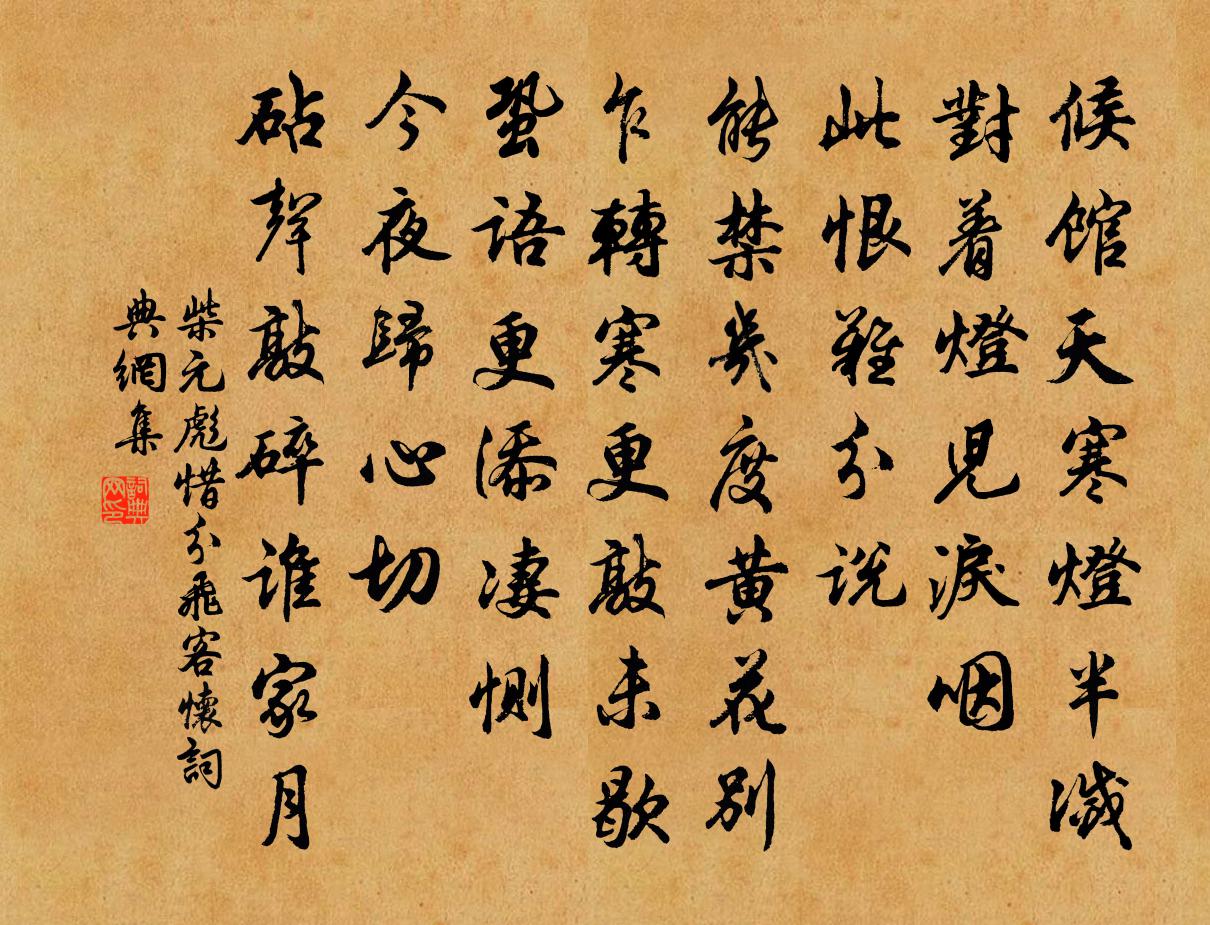 候館天寒燈半滅
對着燈兒淚咽
此恨難分説
能禁幾度黄花別
乍轉寒更敲未歇
蛩語更添凄惻
今夜歸心切
砧聲敲碎誰家月
柴元彪惜分飛客懷詞
典網集
詞典
网印